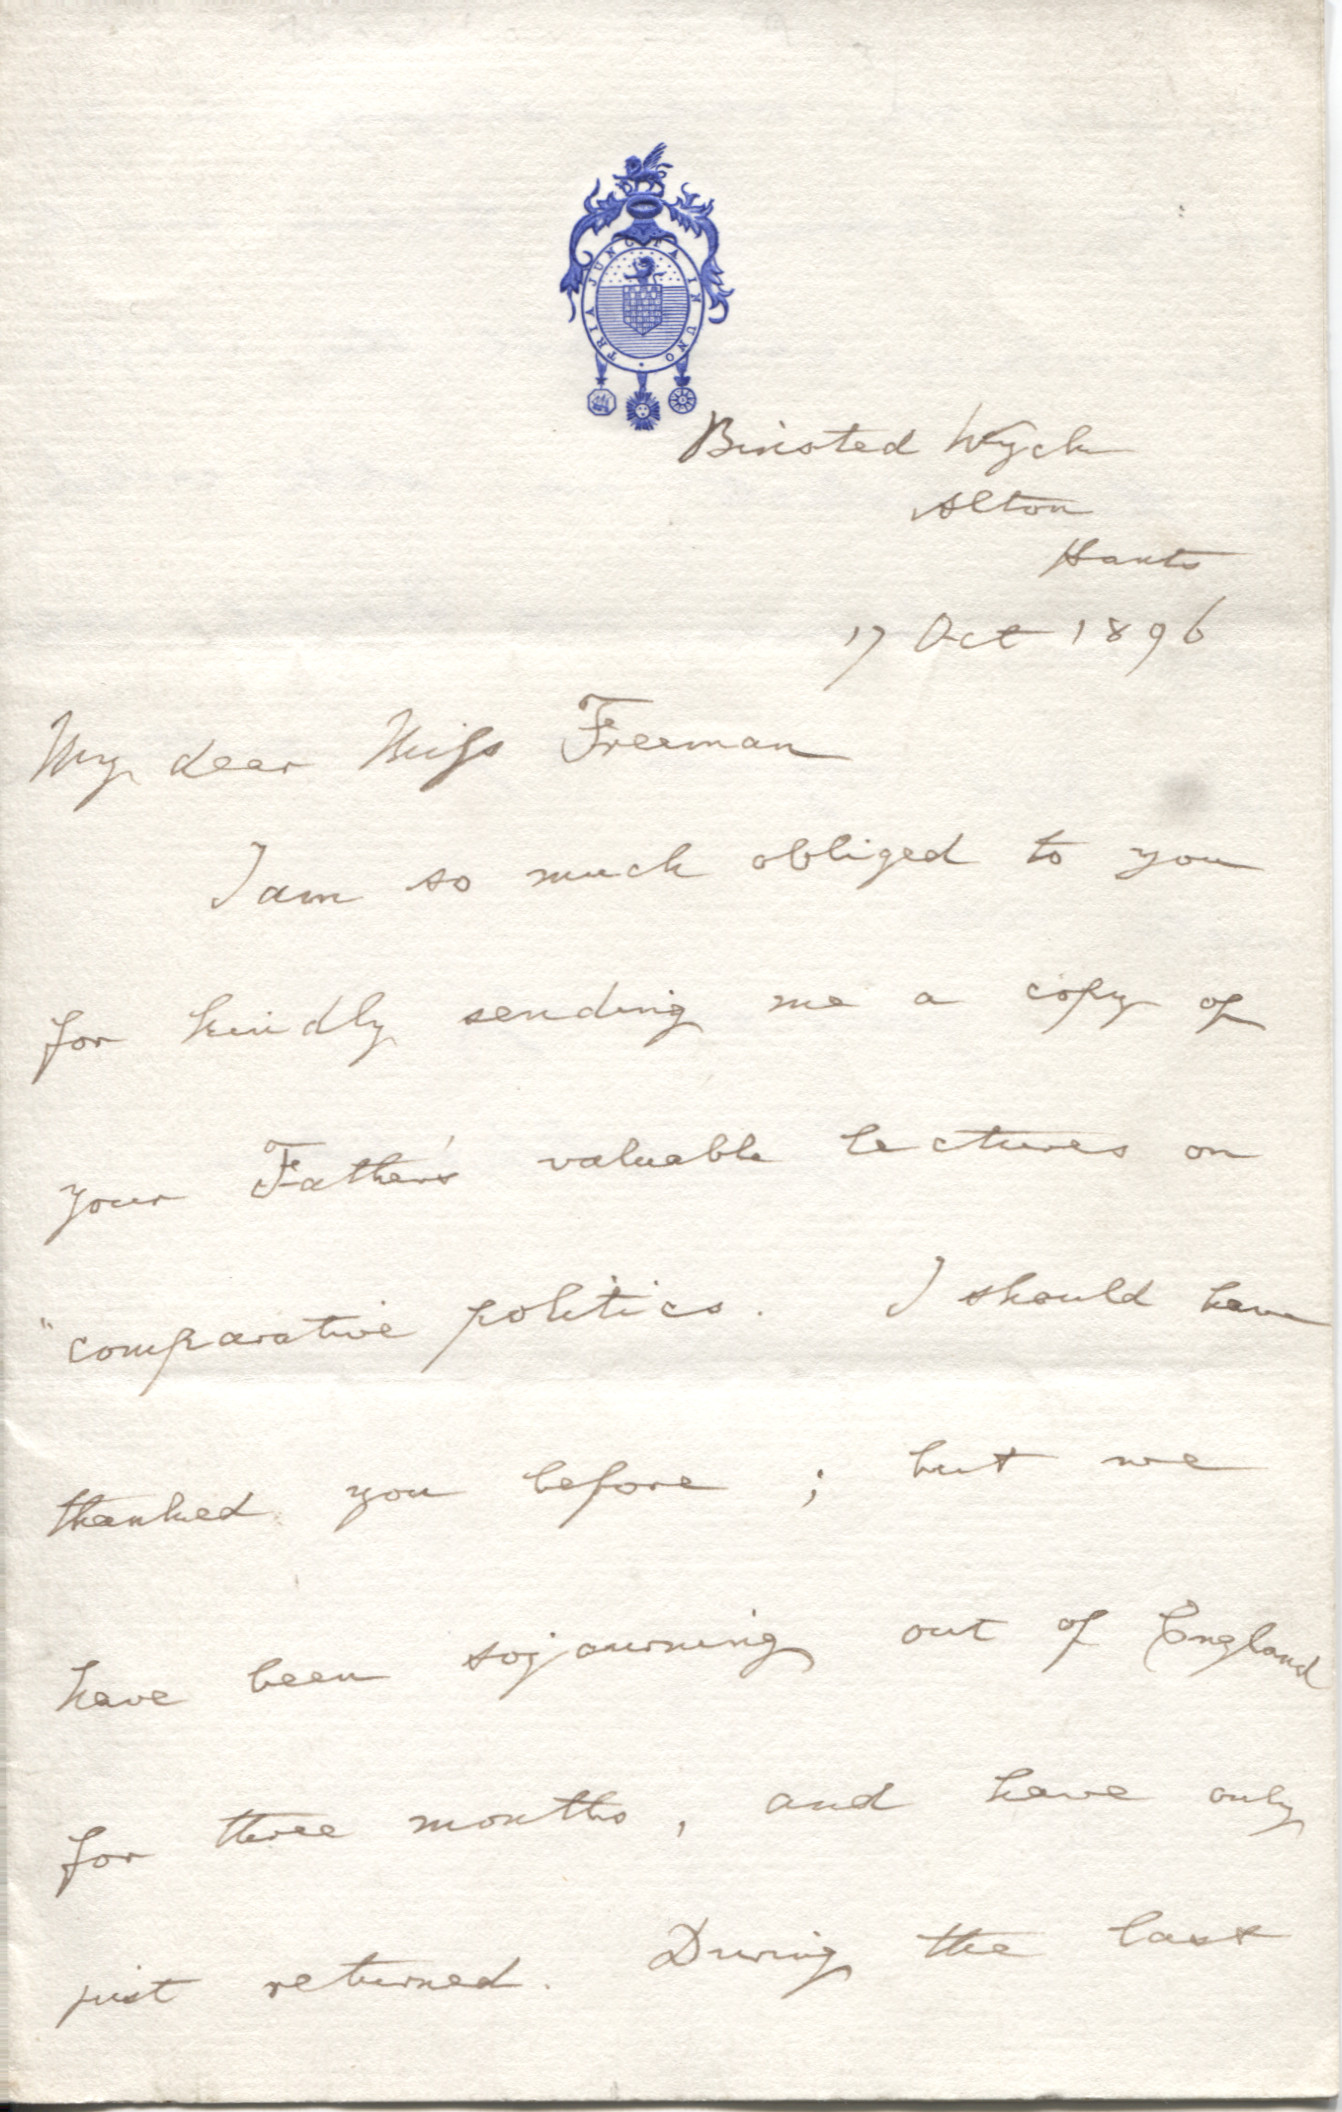 TRIA JUNCTA IN UNO
Binsted Wyck
Alton
Hants
17 Oct 1896
My dear Miss Freeman
I am so much obliged to you
for kindly sending me a copy of
your Father's valuable lectures on
"comparative politics. I should have
thanked you before ; but we
have been sojourning out of England
for three months, and have only
just returned. During the last